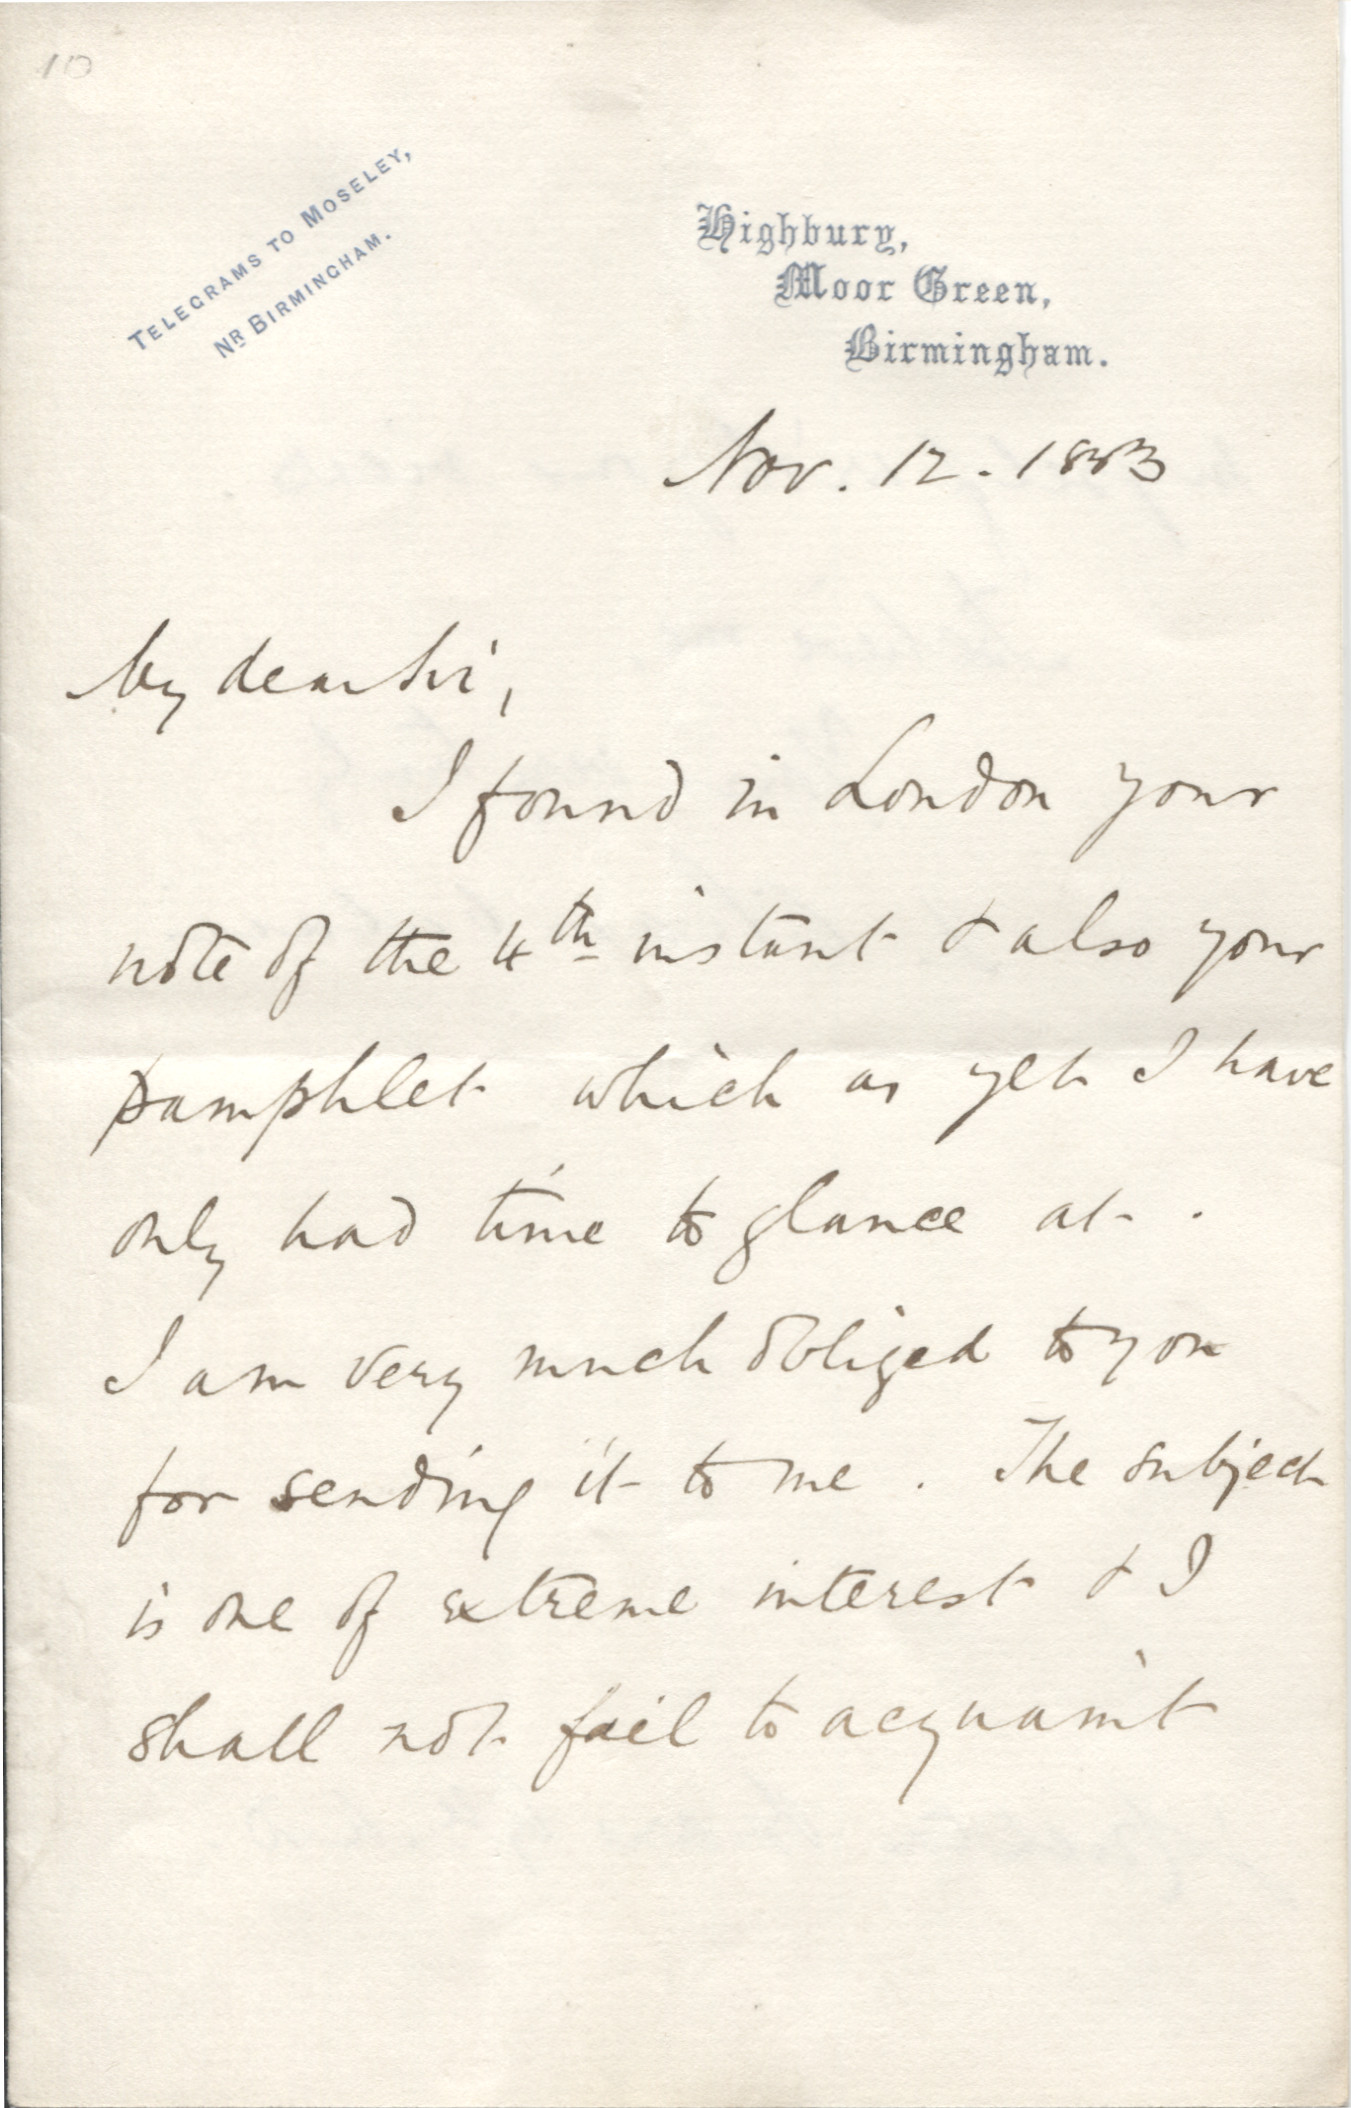 10
TELEGRAMS TO MOSELEY,
NR BIRMINGHAM.
Highbury,
Moor Green,
Birmingham.
Nov. 12. 1883
My dear Sir,
I found in London your
note of the 4th instant & also your
pamphlet which as yet I have
only had time to glance at.
I am very much obliged to you
for sending it to me. The subject
is one of extreme interest & I
shall not fail to acquaint